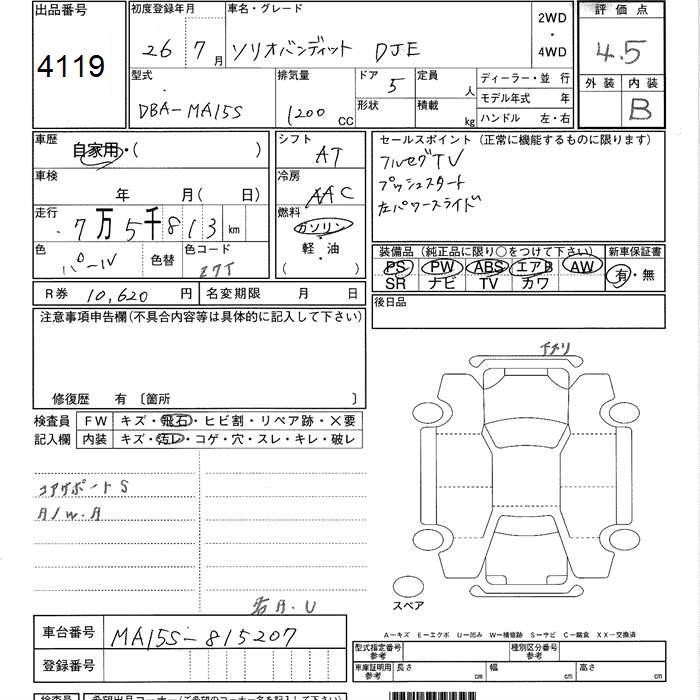 出品番号
4119
初度登録年月
26 7 月
車名・グレード
ソリオバンディット DJE
2WD
・
4WD
評価点
4.5
外装 内装
B
型式
DBA-MA15S
排気量
1200 CC
ドア 5
形状
定員 人
積載 kg
ディーラー・並行
モデル年式 年
ハンドル 左・右
車歴
自家用・( )
車検
年 月( 日)
走行
7万5千813 km
色
パール
色替
色コード
Z7T
シフト
AT
冷房
AAC
燃料
ガソリン
・
軽・油
( )
セールスポイント (正常に機能するものに限ります)
フルセグTV
プッシュスタート
左パワースライド
装備品 (純正品に限り○をつけて下さい)
PS PW ABS エアB AW
SR ナビ TV カワ
新車保証書
有・無
R券 10,620 円
名変期限 月 日
後日品
注意事項申告欄(不具合内容等は具体的に記入して下さい)
修復歴 有 〔箇所 〕
検査員
記入欄
FW キズ・飛石・ヒビ割・リペア跡・×要
内装 キズ・汚レ・コゲ・穴・スレ・キレ・破レ
下スリ
スペア
A-キズ E-エクボ U-凹み W-補修跡 S-サビ C-腐食 XX-交換済
車台番号
MA15S-815207
登録番号
型式指定番号
参考
種別区分番号
参考
車庫証明用
参考
長さ cm
幅 cm
高さ cm